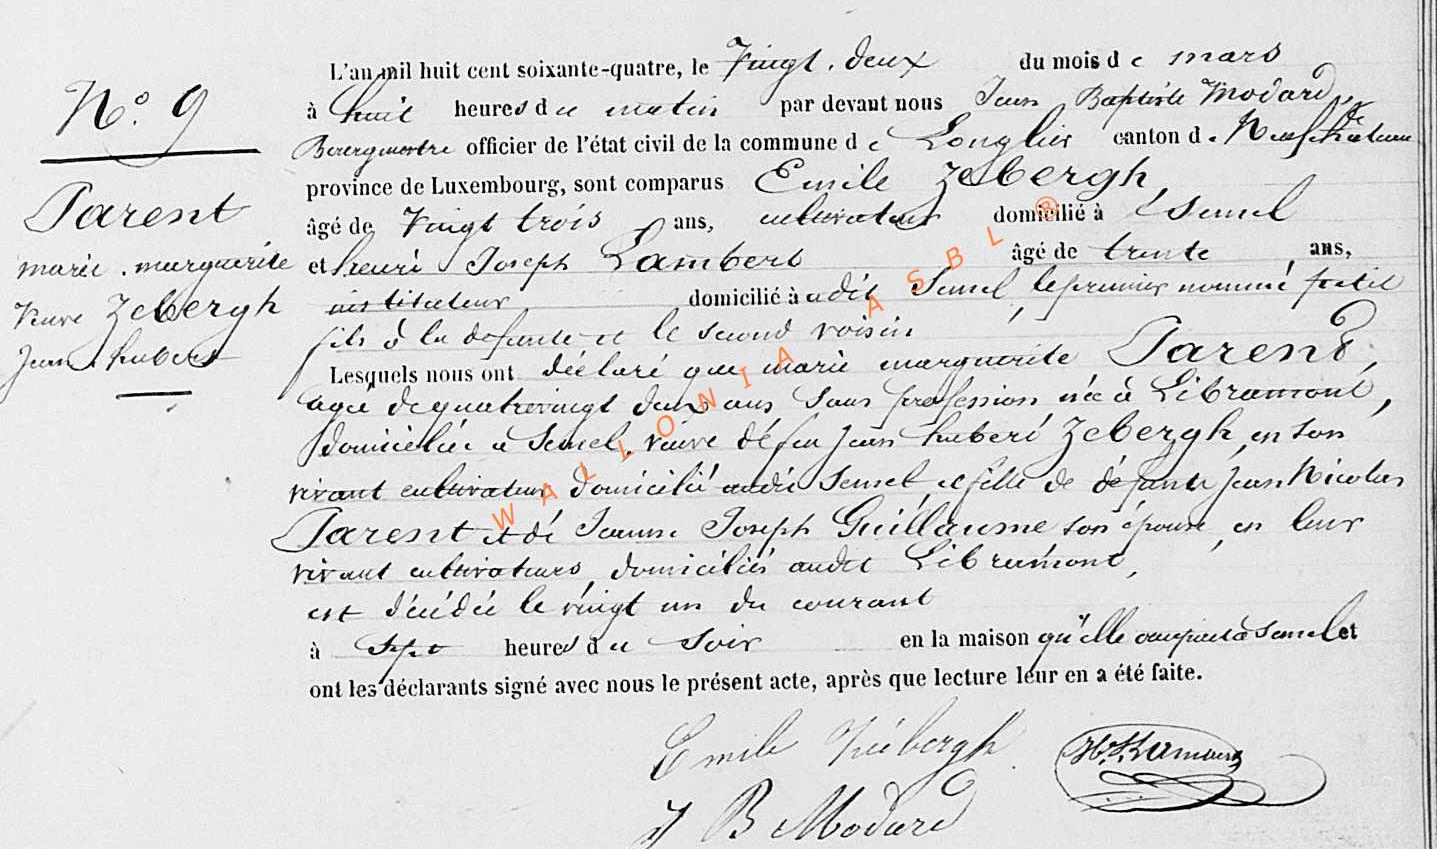 N.° 9
Parent
marie marguerite
veuve Zebergh
Jean hubert
L'an mil huit cent soixante-quatre, le Vingt deux du mois de mars
à huit heures du matin par devant nous Jean Baptiste Modard,
Bourgmestre officier de l'état civil de la commune de Longlier canton de Neufchateau
province de Luxembourg, sont comparus Emile Zebergh,
âgé de Vingt trois ans, cultivateur domicilié à Semel
et henri Joseph Lambert âgé de trente ans,
instituteur domicilié à udit Semel, le premier nommé petit
fils à la defunte et le second voisin
Lesquels nous ont déclaré que marie marguerite Parent,
agée de quatrevingt deux ans sans profession née à Libramont,
domiciliée à Semel, veuve de feu Jean hubert Zebergh, en son
vivant cultivateur domicilié audit Semel, et fille de défunts Jean Nicolas
Parent et de Jeanne Joseph Guillaume son épouse, en leur
vivant cultivateurs, domiciliés audit Libramont,
est décédée le vingt un du courant
à sept heures du soir en la maison qu'elle occupait à Semel et
ont les déclarants signé avec nous le présent acte, après que lecture leur en a été faite.
Emile Zébergh
J B Modard
WALLONIA ASBL ®